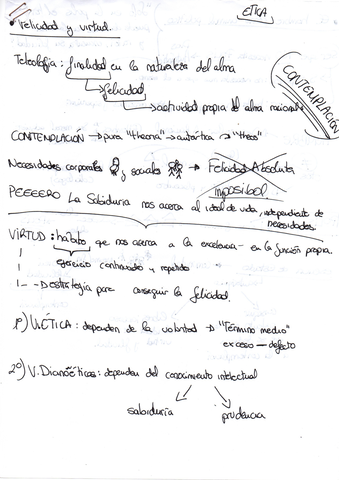 ETICA
Felicidad y virtud.
Teleología: finalidad en la naturaleza del alma
felicidad
actividad propia del alma racional
CONTEMPLACIÓN
CONTENPLACIÓN → pura "theoria" → autartica → "theos"
Necesidades corporales y sociales → Felicidad Absoluta
imposibel.
PEEEERO La Sabiduria nos acerca al ideal de vida, independiente de
necesidades.
VIRTUD: habito que nos acerca a la excelencia - en la función propia.
ejercicio continuado y repetido
estrategia para conseguir la felicidad.
1º) V.ÉTICA: dependen de la voluntad → "Término medio"
exceso — defecto
2º) V. Dianoéticas: dependen del conocimiento intelectual
sabiduría prudencia